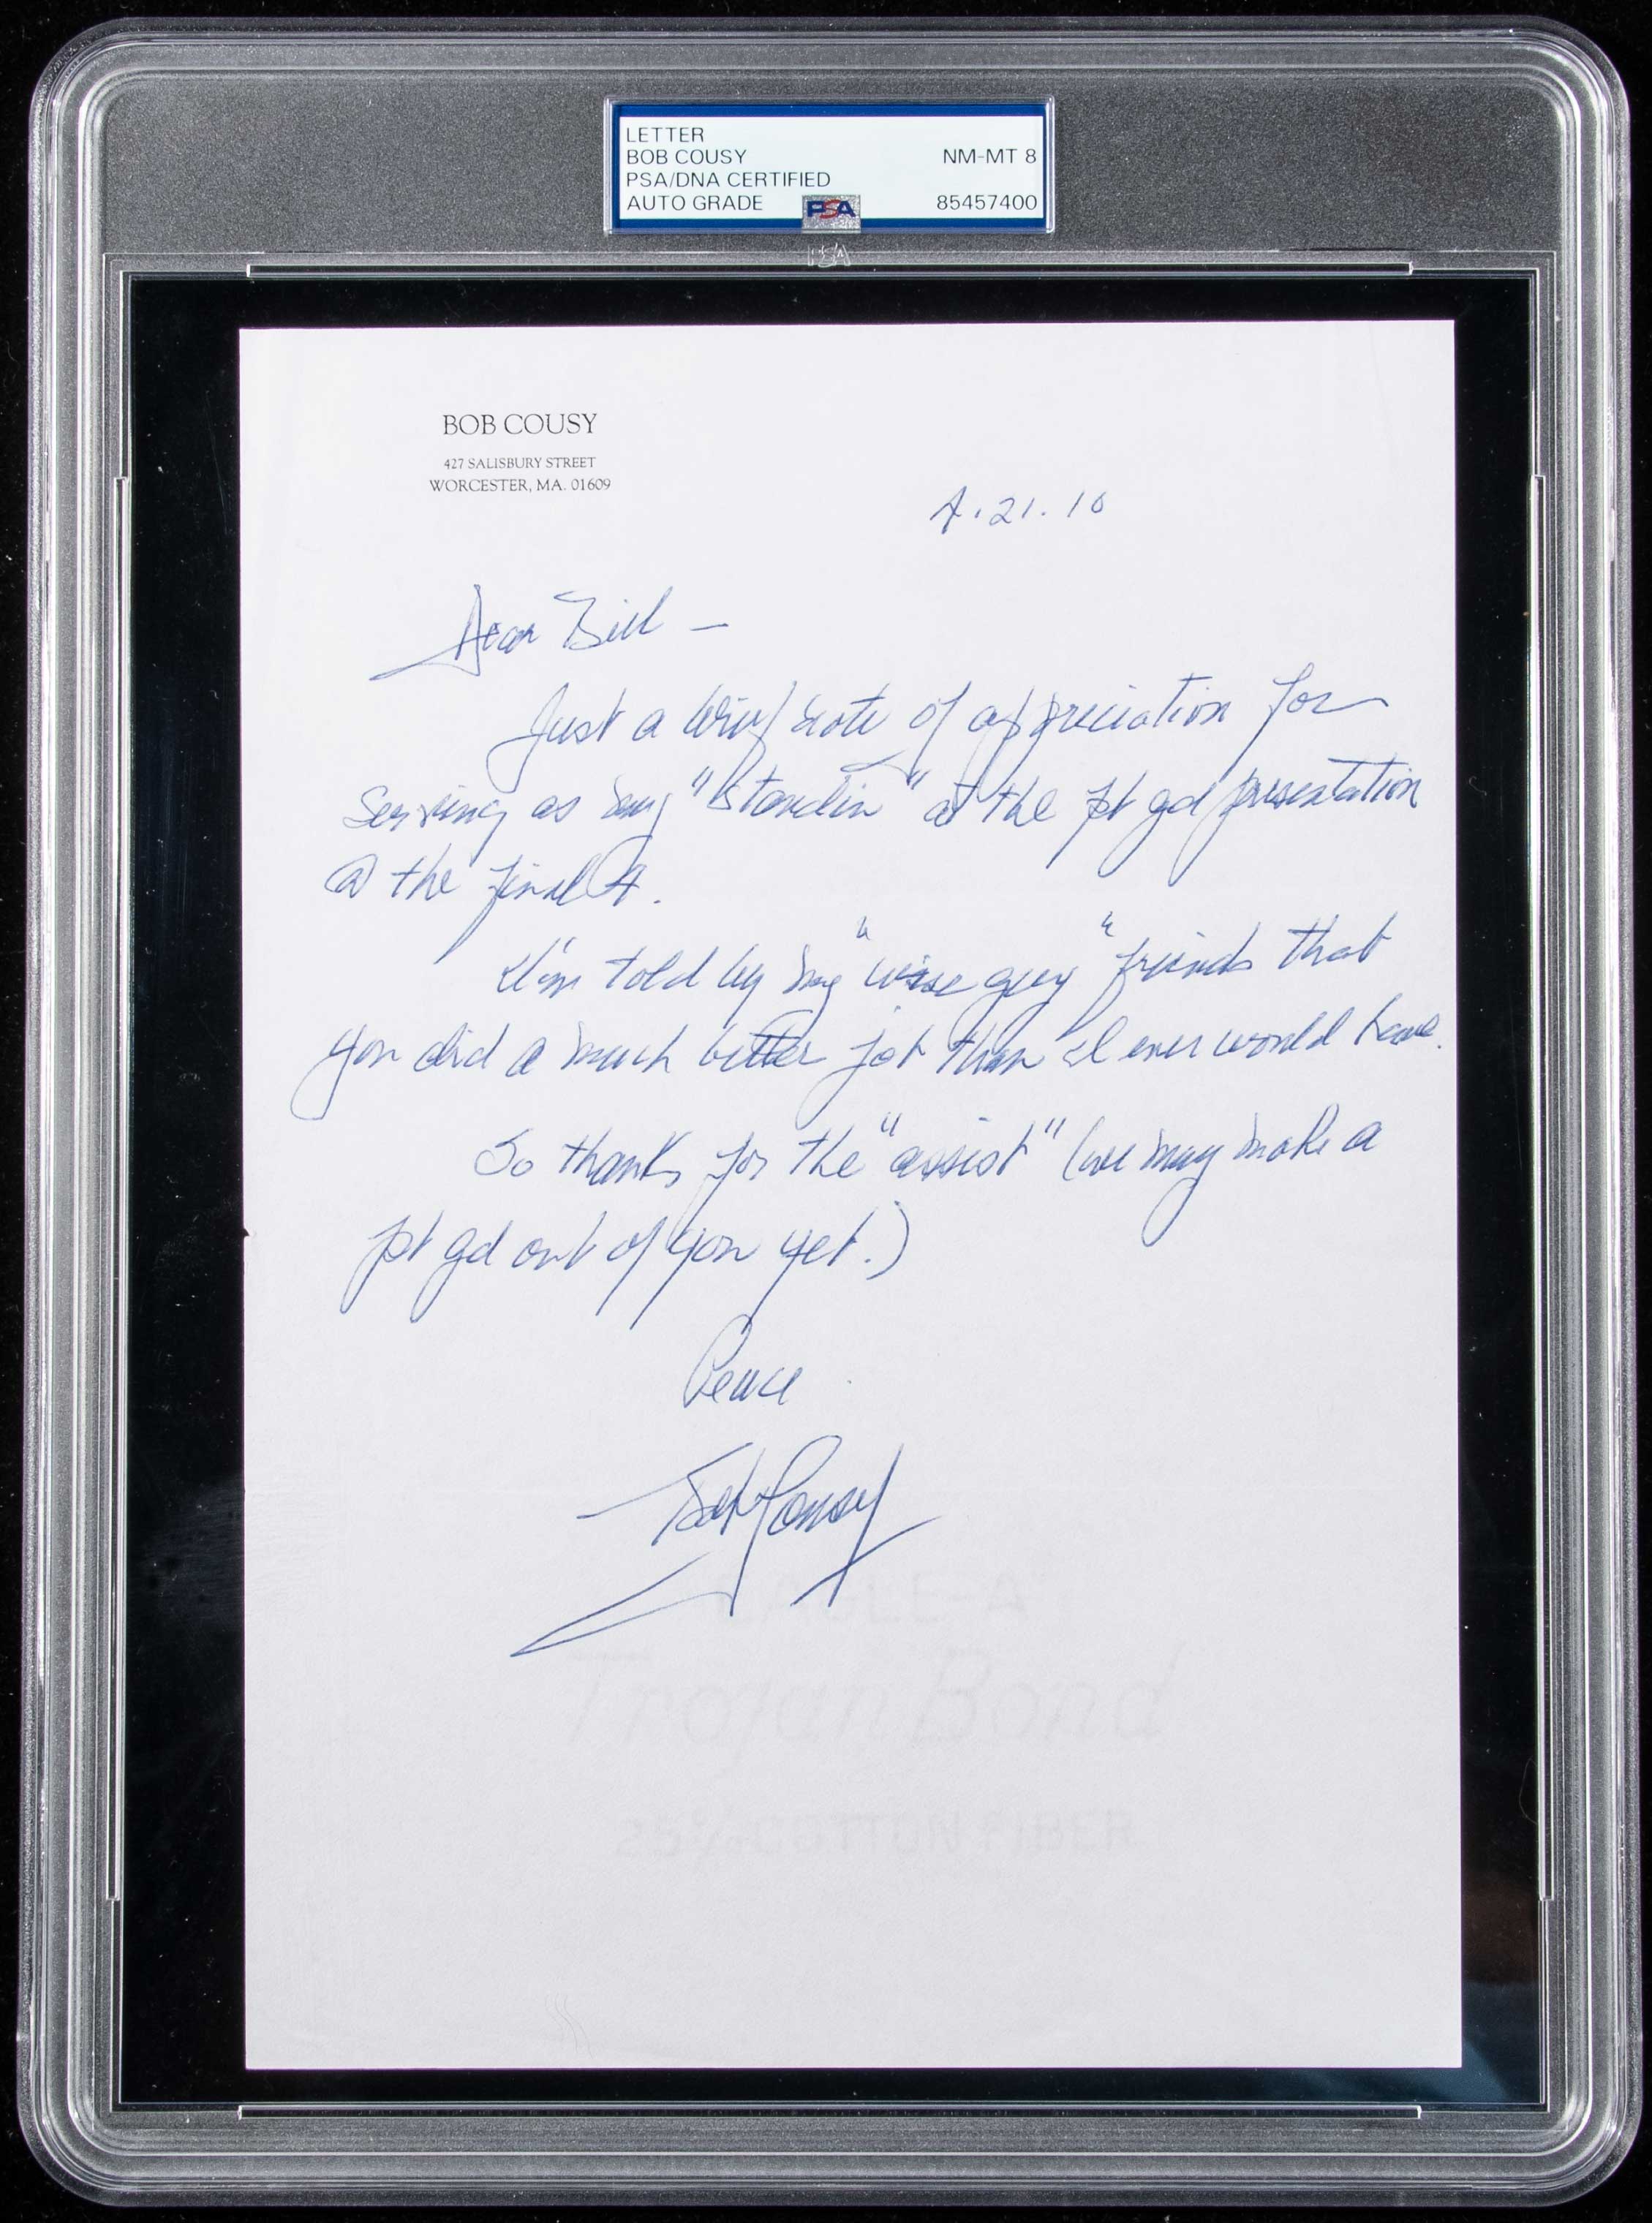 LETTER
BOB COUSY NM-MT 8
PSA/DNA CERTIFIED
AUTO GRADE PSA 85457400
PSA
BOB COUSY
427 SALISBURY STREET
WORCESTER, MA. 01609
4.21.10
Dear Bill —
Just a brief note of appreciation for
serving as my "standin" at the pt gd presentation
@ the final 4.
I'm told by my "wise guy" friends that
you did a much better job than I ever would have.
So thanks for the "assist" (we may make a
pt gd out of you yet.)
Peace
Bob Cousy
EAGLE-A
Trojan Bond
25% COTTON FIBER